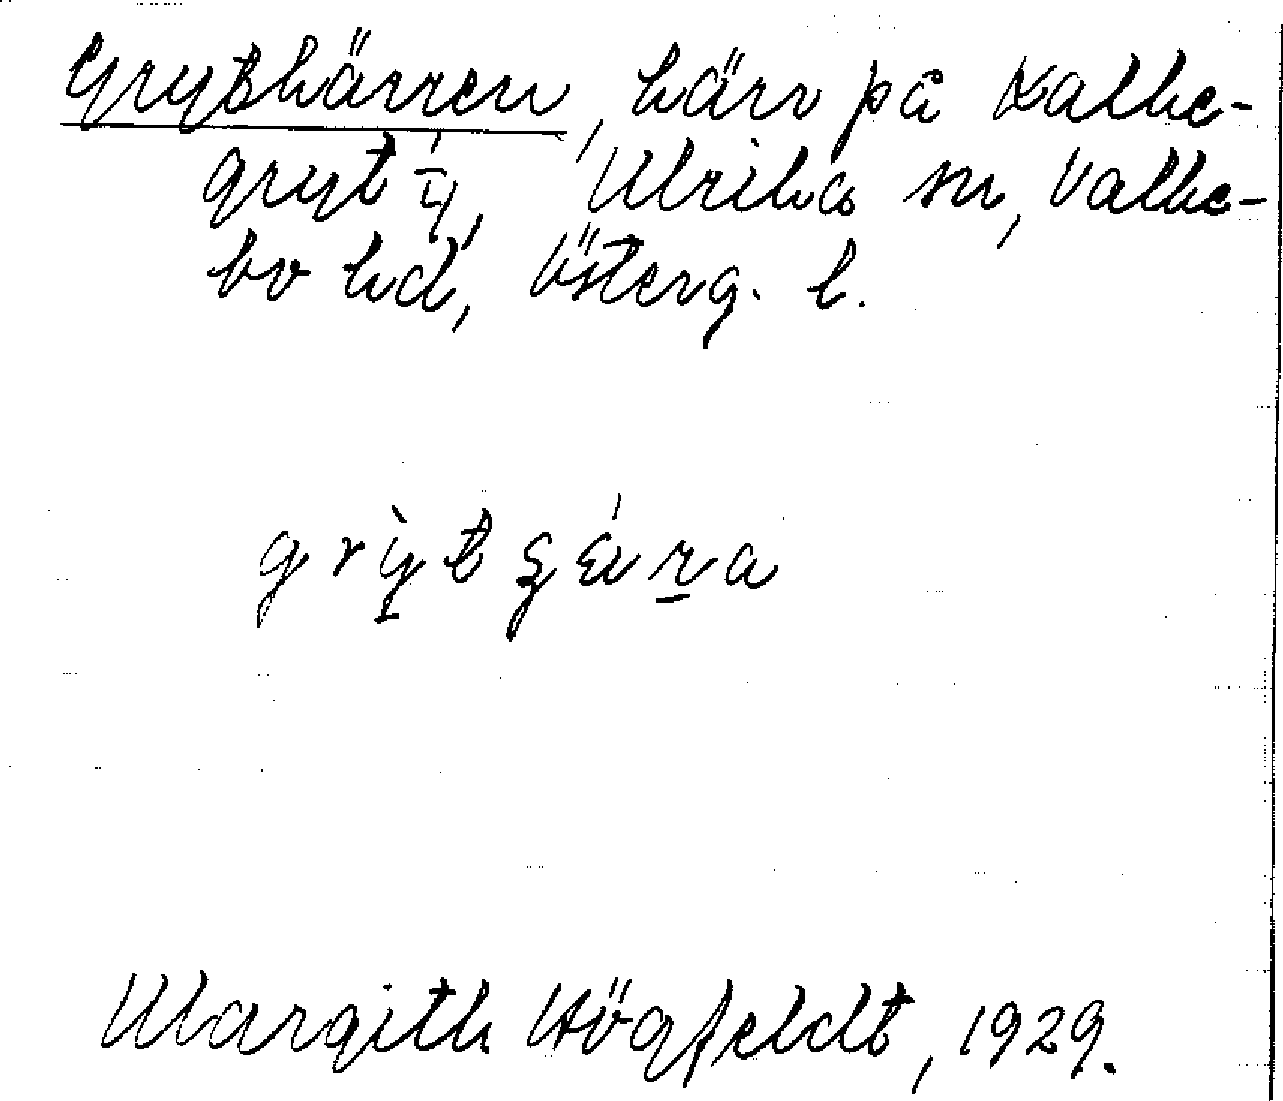 Grytkärren, kärr på Kalke-
gryt 1/4, Ulrika sn, Valke-
bo hd, Österg. l.
Margith Högfeldt, 1929.